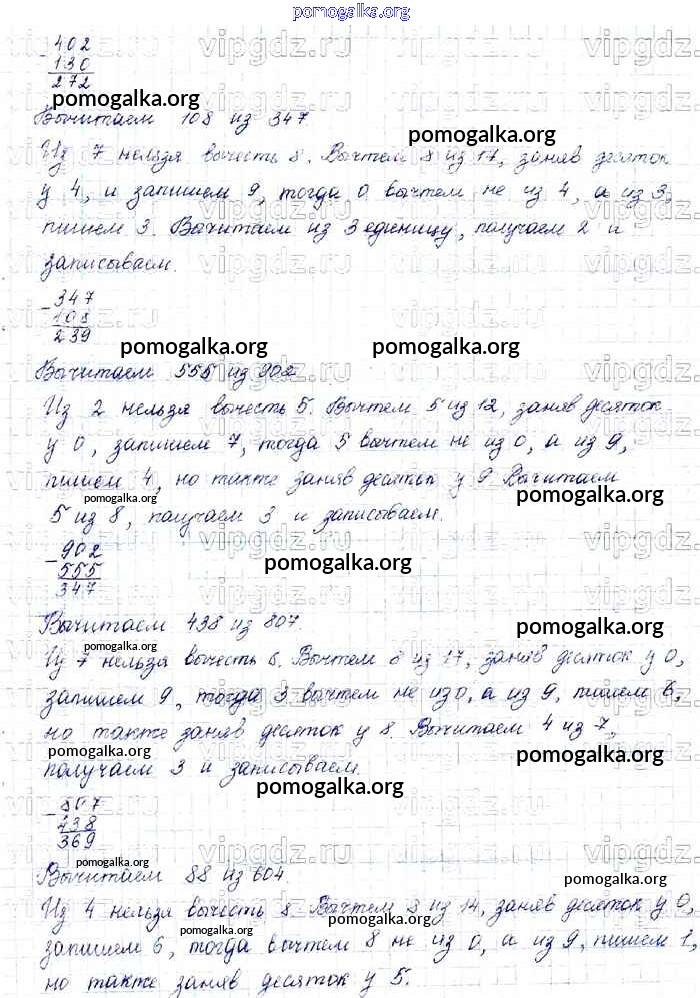 pomogalka.org
402
130
272
pomogalka.org
Вычитаем 108 из 347
pomogalka.org
Из 7 нельзя вычесть 8. Вычтем 8 из 17, заняв десяток
у 4, и запишем 9, тогда 0 вычтем не из 4, а из 3,
пишем 3. Вычитаем из 3 единицу, получаем 2 и
записываем.
- 347
108
239
pomogalka.org pomogalka.org
Вычитаем 555 из 902
Из 2 нельзя вычесть 5. Вычтем 5 из 12, заняв десяток
у 0, запишем 7, тогда 5 вычтем не из 0, а из 9,
пишем 4, но также заняв десяток у 9 Вычитаем
pomogalka.org pomogalka.org
5 из 8, получаем 3 и записываем.
- 902
555
347
pomogalka.org
Вычитаем 438 из 807.
pomogalka.org pomogalka.org
Из 7 нельзя вычесть 8. Вычтем 8 из 17, заняв десяток у 0,
запишем 9, тогда 3 вычтем не из 0, а из 9, пишем 6,
но также заняв десяток у 8. Вычитаем 4 из 7,
pomogalka.org pomogalka.org
получаем 3 и записываем.
pomogalka.org
- 807
438
369
pomogalka.org
Вычитаем 88 из 604
pomogalka.org
Из 4 нельзя вычесть 8. Вычтем 8 из 14, заняв десяток у 0,
pomogalka.org
запишем 6, тогда вычтем 8 не из 0, а из 9, пишем 1,
но также заняв десяток у 5.
pomogalka.org pomogalka.org
vipgdz.ru